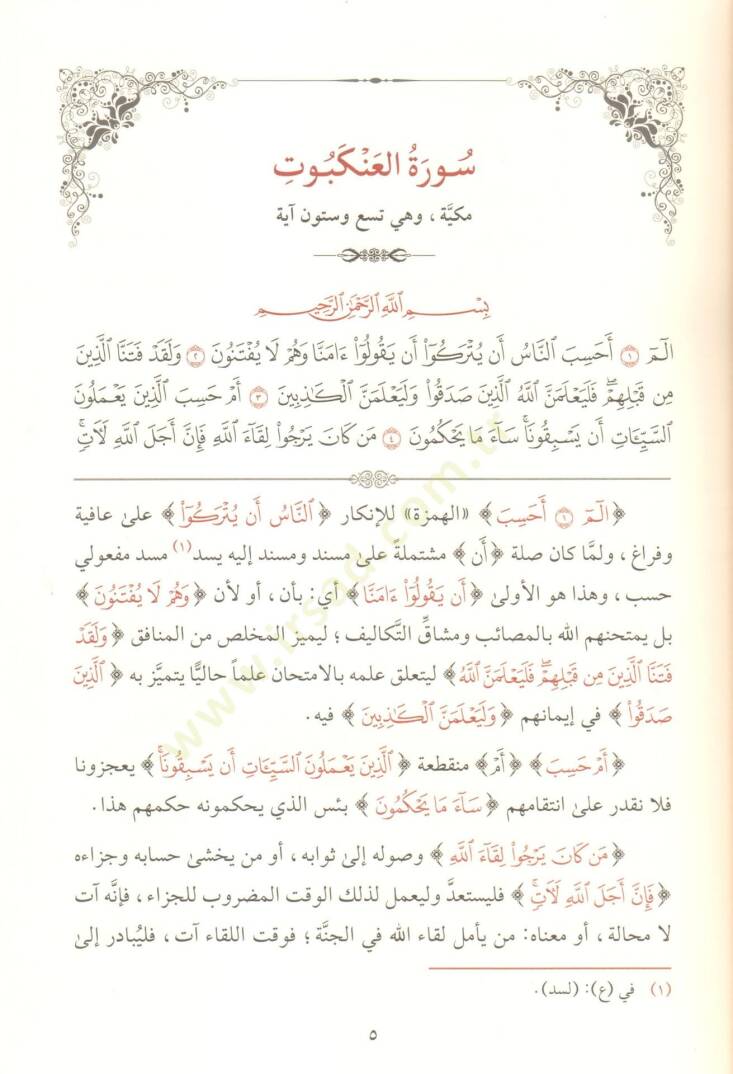 سُورَةُ العَنْكَبُوتِ
مكيَّة ، وهي تسع وستون آية
بِسْمِ اللَّهِ الرَّحْمَٰنِ الرَّحِيمِ
الٓمٓ ۝١ أَحَسِبَ ٱلنَّاسُ أَن يُتْرَكُوٓا۟ أَن يَقُولُوٓا۟ ءَامَنَّا وَهُمْ لَا يُفْتَنُونَ ۝٢ وَلَقَدْ فَتَنَّا ٱلَّذِينَ
مِن قَبْلِهِمْ ۖ فَلَيَعْلَمَنَّ ٱللَّهُ ٱلَّذِينَ صَدَقُوا۟ وَلَيَعْلَمَنَّ ٱلْكَٰذِبِينَ ۝٣ أَمْ حَسِبَ ٱلَّذِينَ يَعْمَلُونَ
ٱلسَّيِّـَٔاتِ أَن يَسْبِقُونَا ۚ سَآءَ مَا يَحْكُمُونَ ۝٤ مَن كَانَ يَرْجُوا۟ لِقَآءَ ٱللَّهِ فَإِنَّ أَجَلَ ٱللَّهِ لَـَٔاتٍ ۚ
﴿الٓمٓ ۝١ أَحَسِبَ﴾ «الهمزة» للإنكار ﴿ٱلنَّاسُ أَن يُتْرَكُوٓا۟﴾ علىٰ عافية
وفراغ ، ولمَّا كان صلة ﴿أَن﴾ مشتملةً علىٰ مسند ومسند إليه يسد(١) مسد مفعولي
حسب ، وهذا هو الأولىٰ ﴿أَن يَقُولُوٓا۟ ءَامَنَّا﴾ أي: بأن ، أو لأن ﴿وَهُمْ لَا يُفْتَنُونَ﴾
بل يمتحنهم الله بالمصائب ومشاقِّ التَّكاليف ؛ ليميز المخلص من المنافق ﴿وَلَقَدْ
فَتَنَّا ٱلَّذِينَ مِن قَبْلِهِمْ ۖ فَلَيَعْلَمَنَّ ٱللَّهُ﴾ ليتعلق علمه بالامتحان علماً حاليًّا يتميَّز به ﴿ٱلَّذِينَ
صَدَقُوا۟﴾ في إيمانهم ﴿وَلَيَعْلَمَنَّ ٱلْكَٰذِبِينَ﴾ فيه.
﴿أَمْ حَسِبَ﴾ ﴿أَمْ﴾ منقطعة ﴿ٱلَّذِينَ يَعْمَلُونَ ٱلسَّيِّـَٔاتِ أَن يَسْبِقُونَا ۚ﴾ يعجزونا
فلا نقدر علىٰ انتقامهم ﴿سَآءَ مَا يَحْكُمُونَ﴾ بئس الذي يحكمونه حكمهم هذا.
﴿مَن كَانَ يَرْجُوا۟ لِقَآءَ ٱللَّهِ﴾ وصوله إلىٰ ثوابه ، أو من يخشىٰ حسابه وجزاءه
﴿فَإِنَّ أَجَلَ ٱللَّهِ لَـَٔاتٍ ۚ﴾ فليستعدَّ وليعمل لذلك الوقت المضروب للجزاء ، فإنَّه آت
لا محالة ، أو معناه: من يأمل لقاء الله في الجنَّة ؛ فوقت اللقاء آت ، فليُبادر إلىٰ
(١) في (ع): (لسد).
٥
www.irsad.com.tr